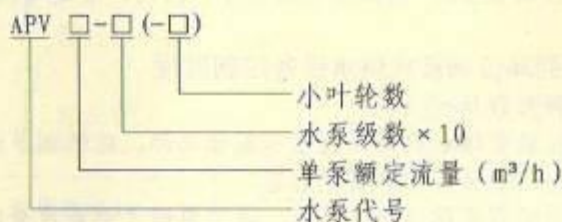 APV □-□(-□)
小叶轮数
水泵级数×10
单泵额定流量（m³/h）
水泵代号